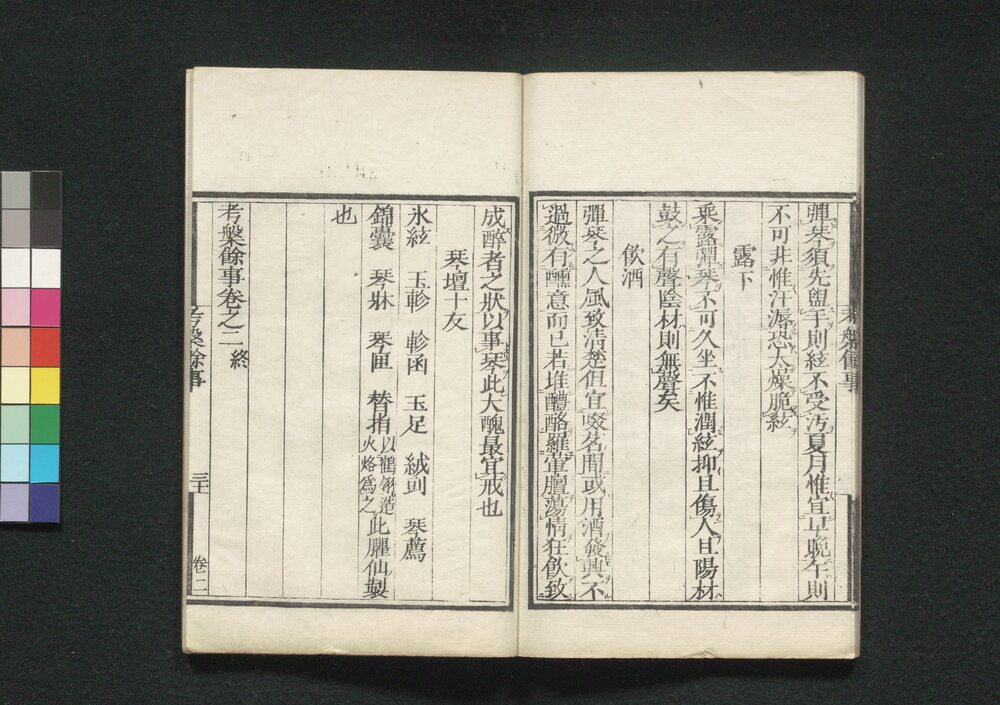 彈琴須先盥手則絃不受汚夏月惟宜早晚午則
不可非惟汗溽恐太燥脆絃
露下
乘露彈琴不可久坐不惟潤絃抑且傷人且陽材
鼓之有聲陰材則無聲矣
飲酒
彈琴之人風致清楚但宜啜茗間或用酒發興不
過微有醺意而已若堆醴酪羅葷膻蕩情狂飲致
考槃餘事
成醉者之狀以事琴此大醜最宜戒也
琴壇十友
氷絃 玉軫 軫函 玉足 絨剅 琴薦
錦囊 琴牀 琴匣 替指 以鶴翎造
火烙爲之 此臞仙製
也
考槃餘事卷之二 終
考槃餘事 三十 卷二